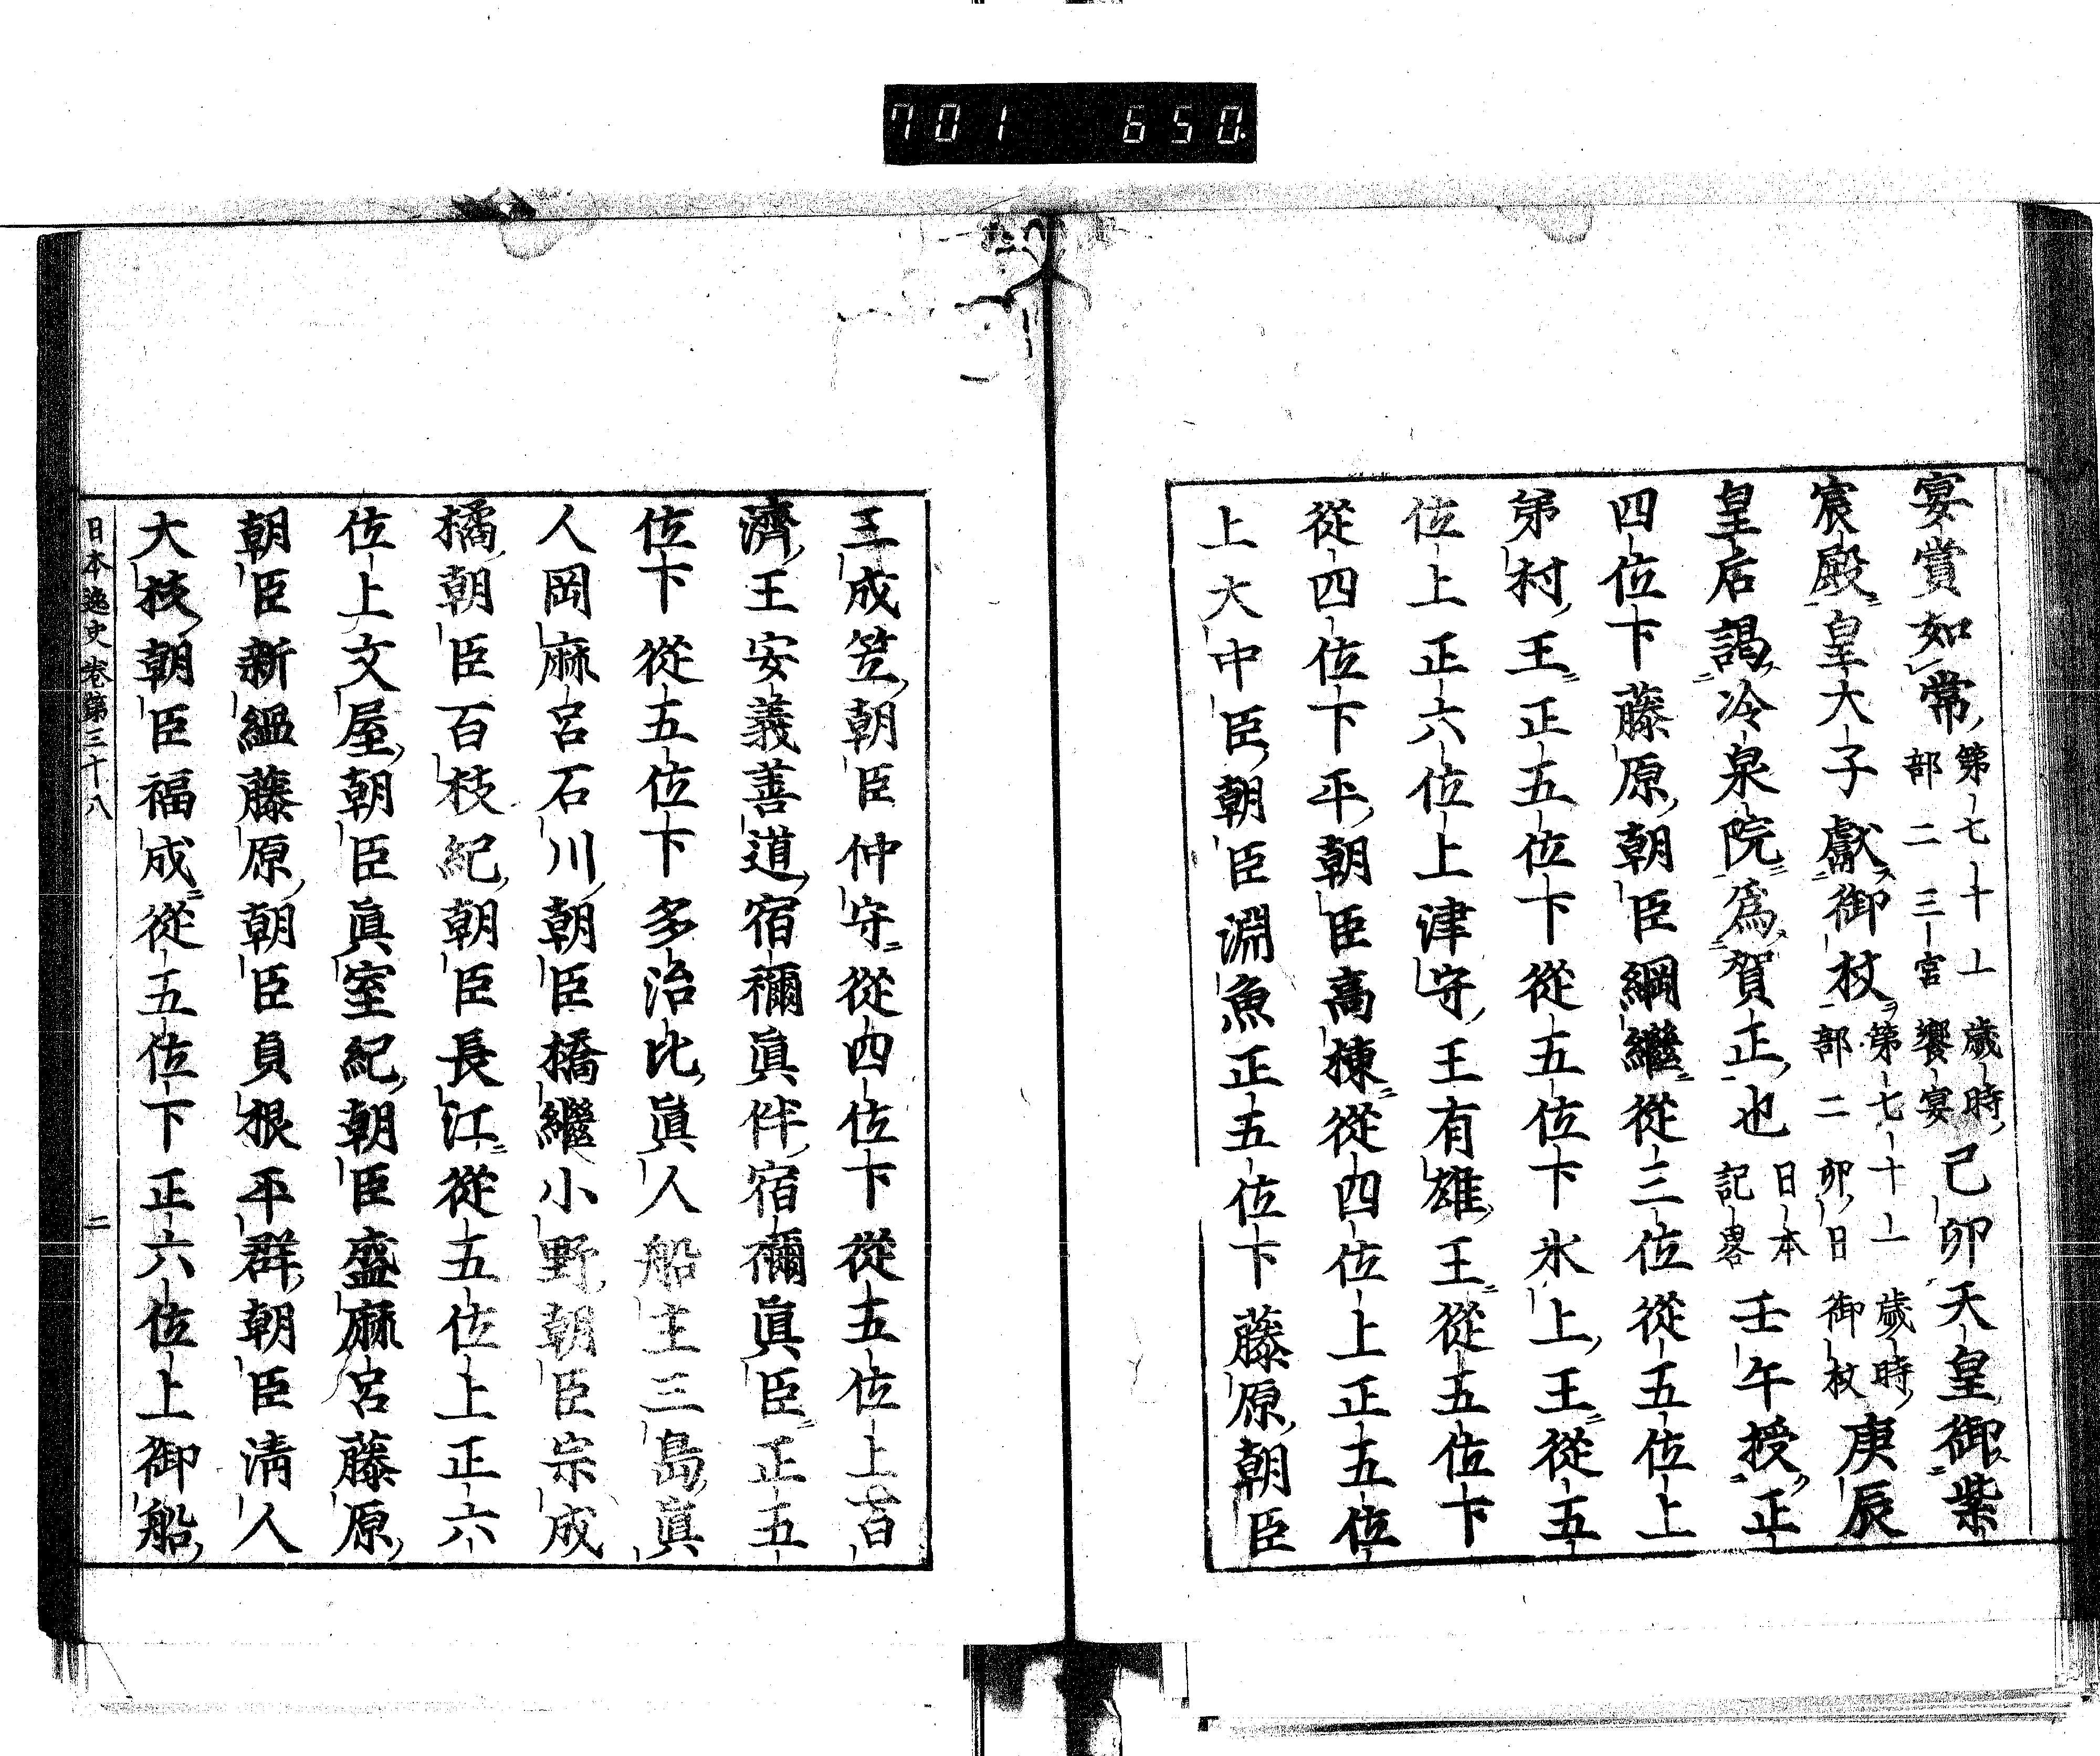 701 650
宴賞如常第七十一歲時部二三宮饗宴己卯天皇御紫
宸殿皇大子獻御杖第七十一歲時部二卯日御杖庚辰
皇后謁冷泉院爲賀正也日本記畧壬午授正
四位下藤原朝臣綱繼從三位從五位上
弟村王正五位下從五位下氷上王從五
位上正六位上津守王有雄王從五位下
從四位下平朝臣高棟從四位上正五位
上大中臣朝臣淵魚正五位下藤原朝臣
三成笠朝臣仲守從四位下從五位上百
濟王安義善道宿禰眞伴宿禰眞臣正五
位下從五位下多治比眞人船主三島眞
人岡麻呂石川朝臣橋繼小野朝臣宗成
橘朝臣百枝紀朝臣長江從五位上正六
位上文屋朝臣眞室紀朝臣盛麻呂藤原
朝臣新縕藤原朝臣貞根平群朝臣淸人
大枝朝臣福成從五位下正六位上御船
日本逸史卷第三十八 二